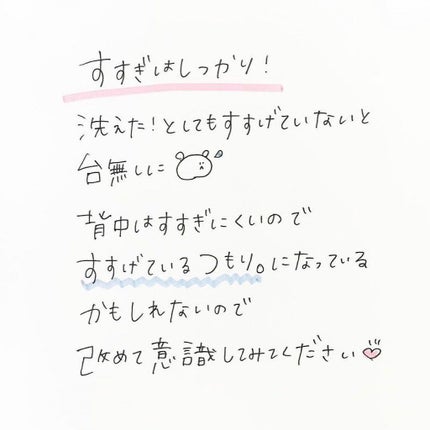 すすぎはしっかり！
洗えた！としてもすすげていないと
台無しに
背中はすすぎにくいので
すすげているつもり。になっている
かもしれないので
改めて意識してみてください